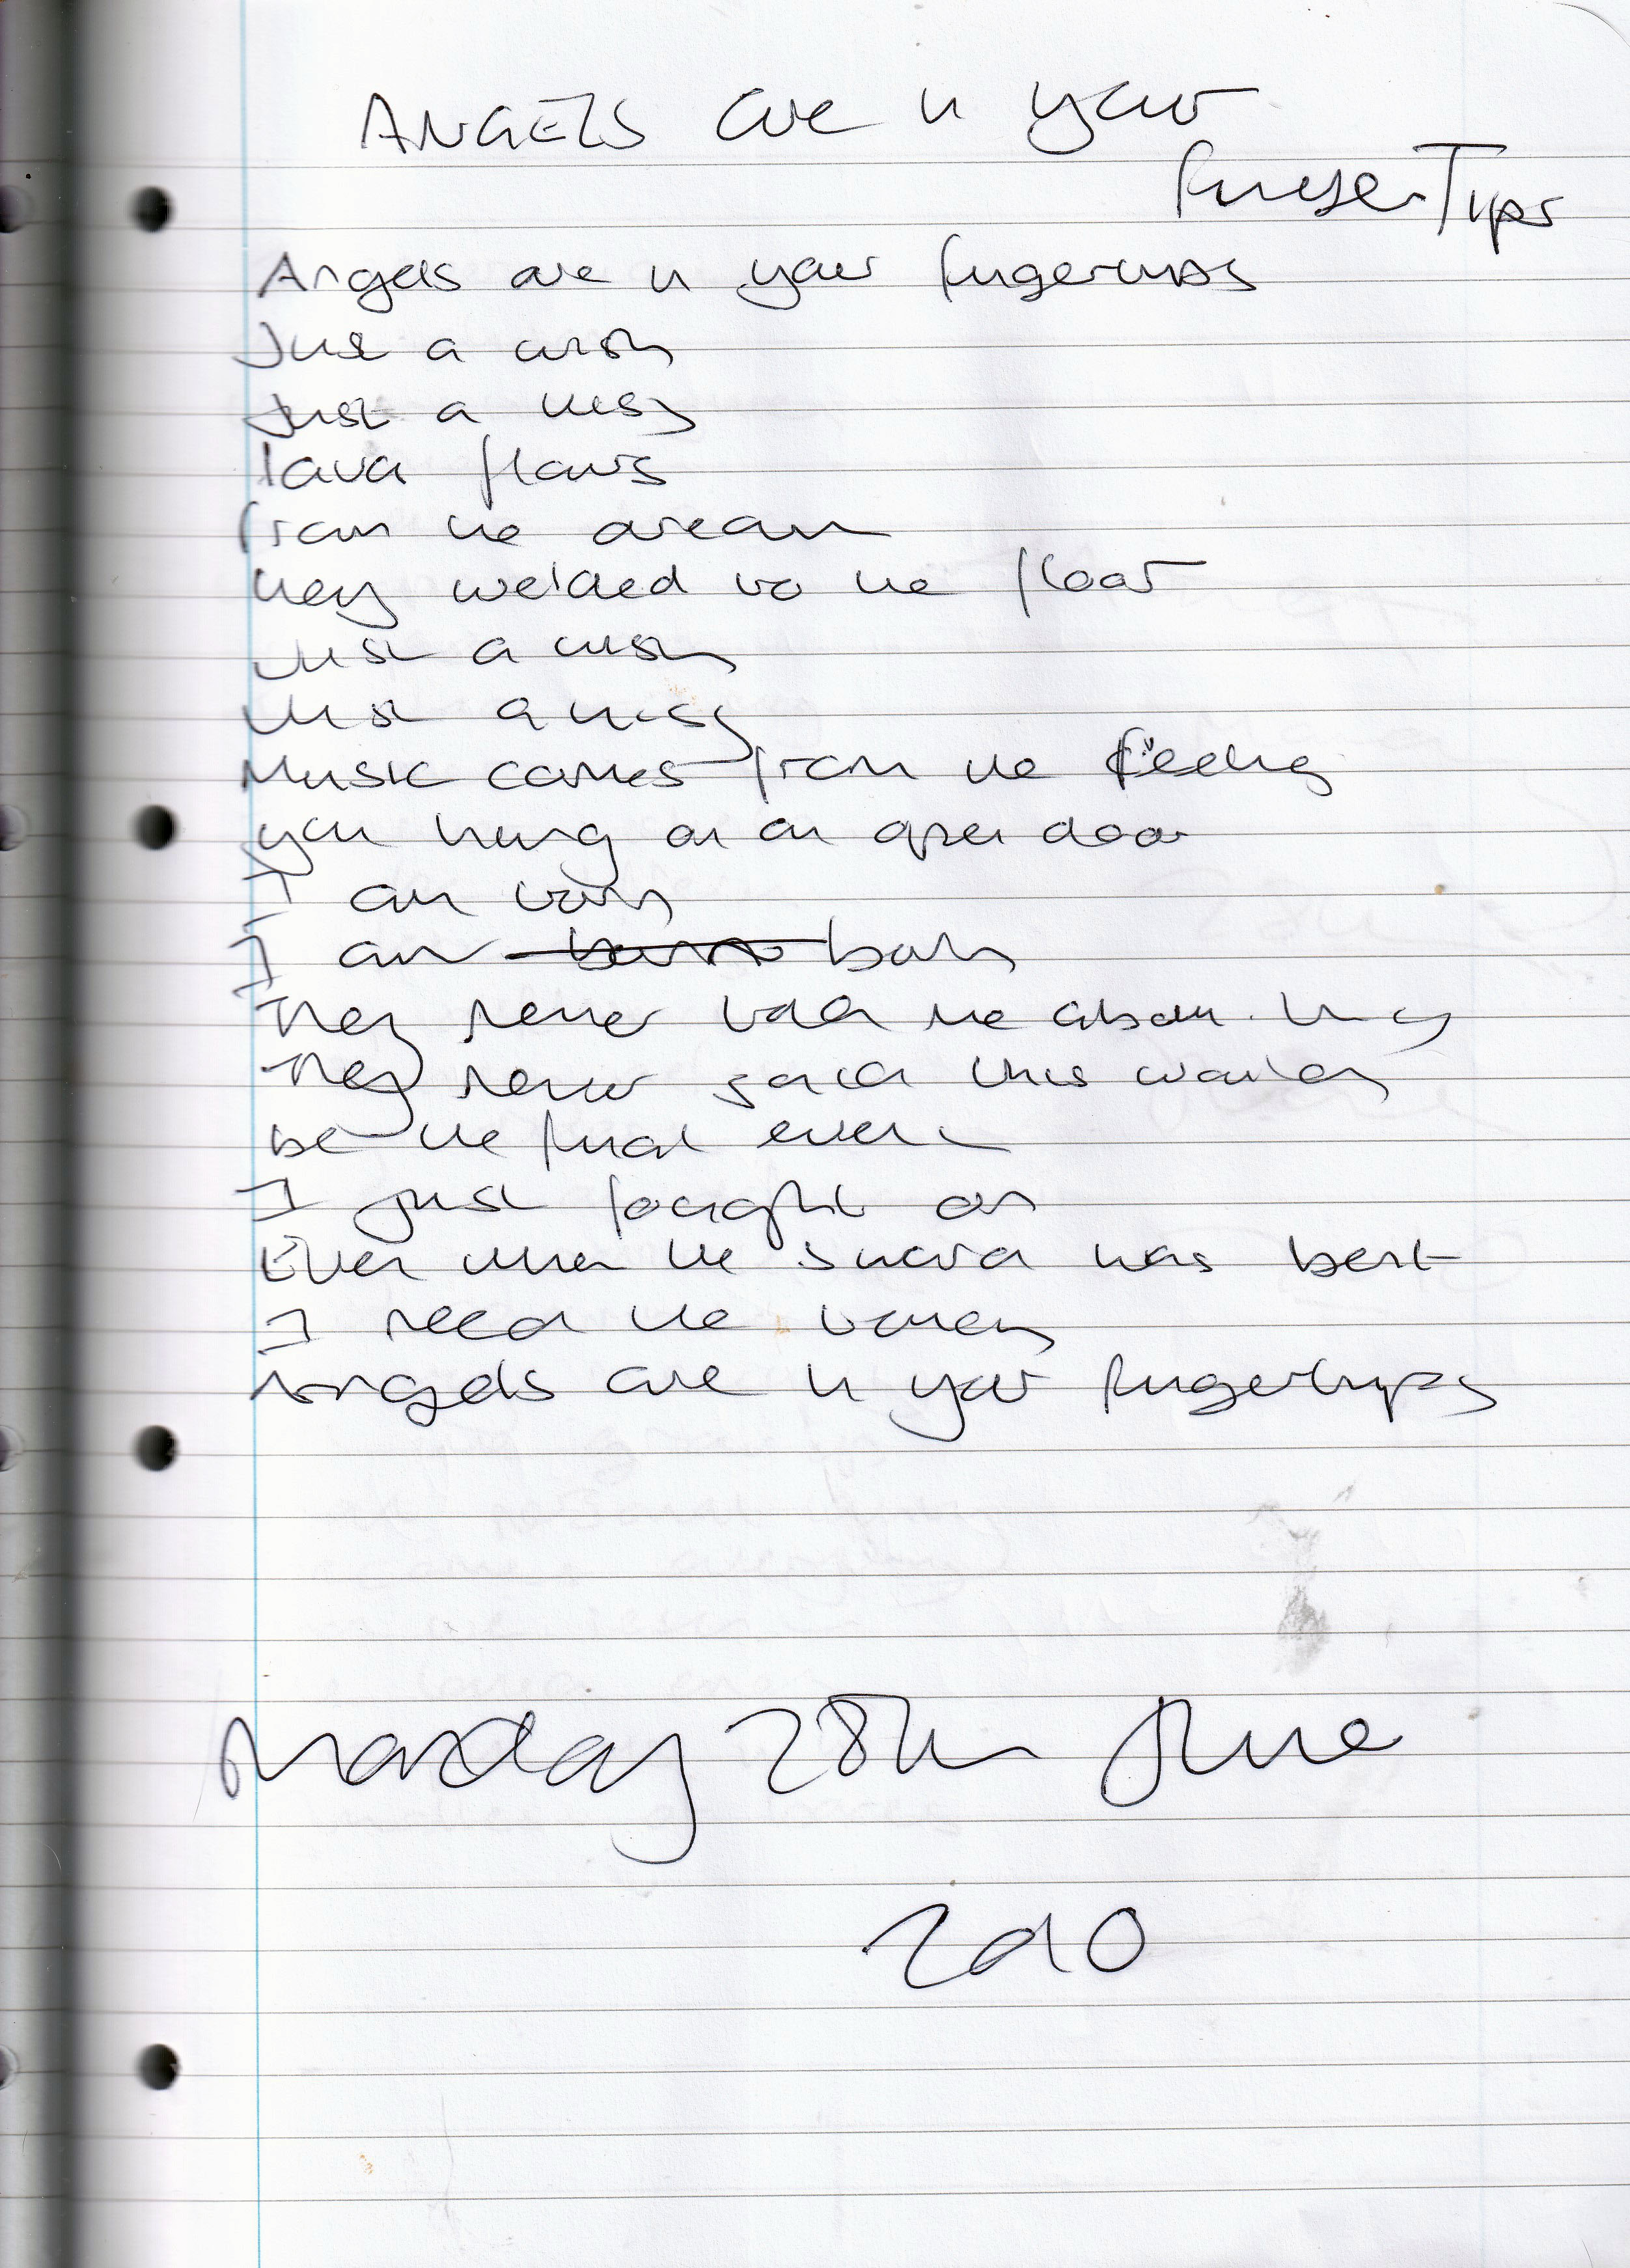 ANGELS are in your
FingerTips
Angels are in your fingertips
Just a wish
Just a kiss
lava flows
from the dream
they welded to the floor
Just a wish
Just a kiss
Music comes from the feeling
you hung on an open door
I am torn
I am born
They never told me about
They never said this would
be the final event
I just fought on
Even when the sword was bent
I need the
Angels are in your fingertips
Monday 28th June
2010